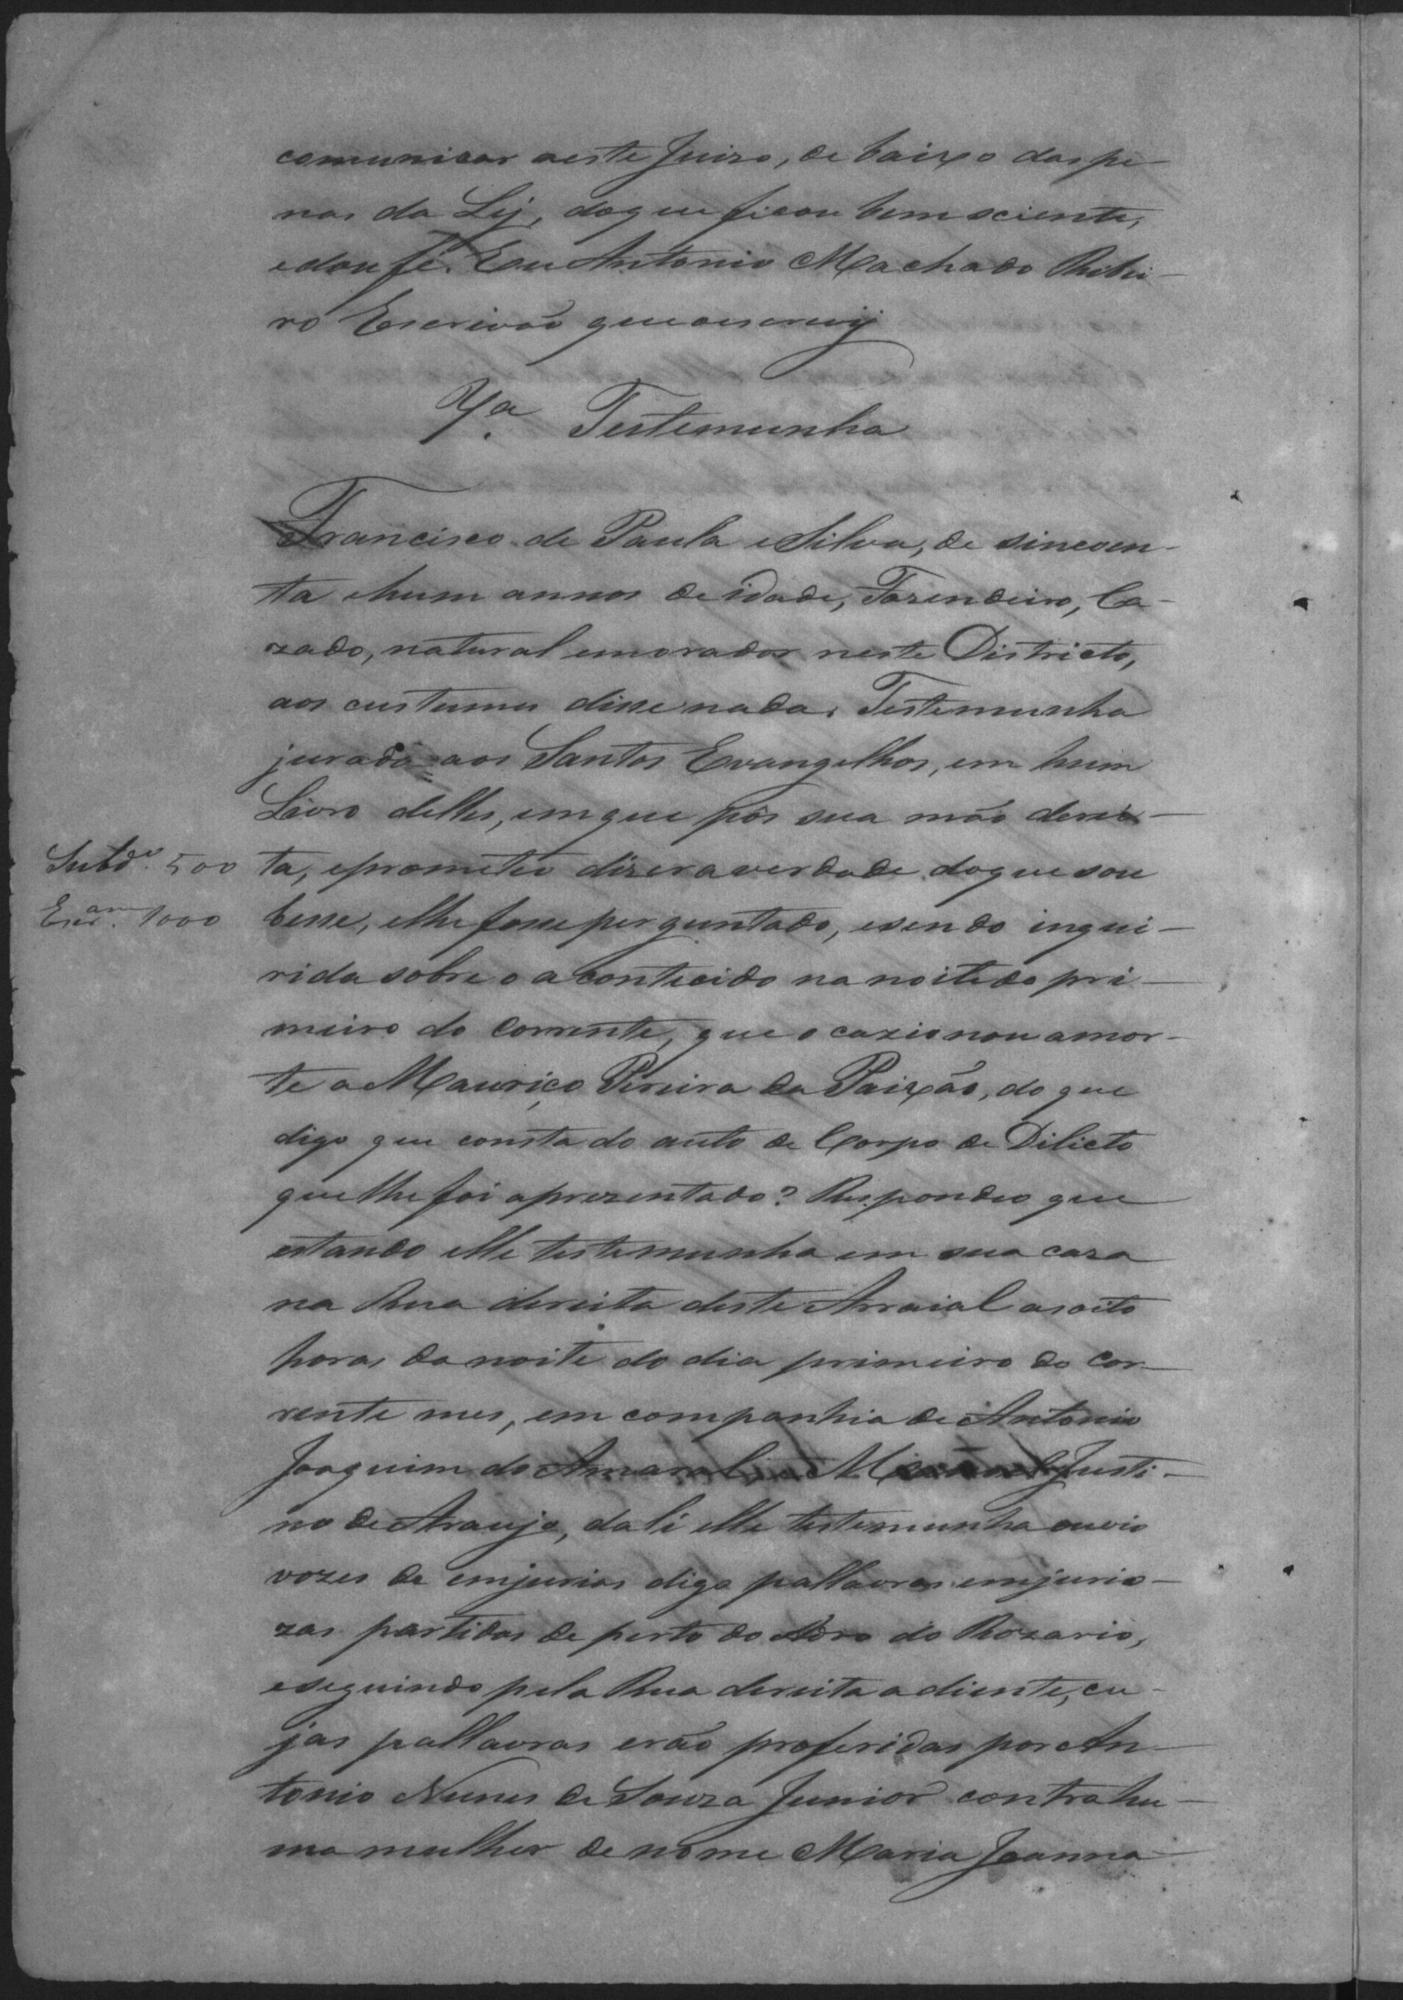 comunicar aeste Juizo, de baixo daspe-
nas da Lej, doque ficou bem sciente,
edou fé. Eu Antonio Machado Ribei-
ro Escrivão queoescrevij
7ª. Testemunha
Francisco de Paula eSilva, de sincoen-
ta ehum annos de idade, Fazendeiro, Ca-
zado, natural emorador neste Districto,
aos custumes disse nada. Testemunha
jurado aos Santos Evangelhos, em hum
Livro delles, emque pôs sua mão derei-
Subdº. 500
ta, eprometeo dizeraverdade doquesou
1000
besse, elhefosseperguntado, esendo inqui-
rida sobre o acontecido na noitedo pri-
meiro do Corrente, que ocazionou amor-
te a Mauriço Pereira da Paixão, do que
digo que consta do auto de Corpo de Dilicto
quelhefoi aprezentado? Respondeo que
estando elle testemunha em sua caza
na Rua direita deste Arraial asoito
horas da noite do dia primeiro do Cor-
rente mes, em companhia de Antonio
Joaquim do Amaral, e Justi-
no de Araujo, dali elle testemunha ouvio
vozes de emjurias digo pallavras emjurio-
zas partidas de perto do Adro do Rozario,
eseguindo pela Rua direita adiente, cu-
jas pallavras erão proferidas por An-
tonio Nunes de Souza Junior contra hu-
ma mulher de nome Maria Joanna